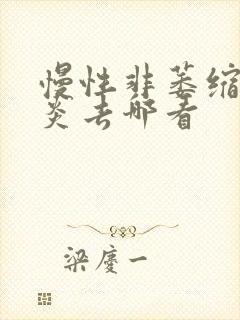 慢性非萎缩
炎去哪看
梁庆一